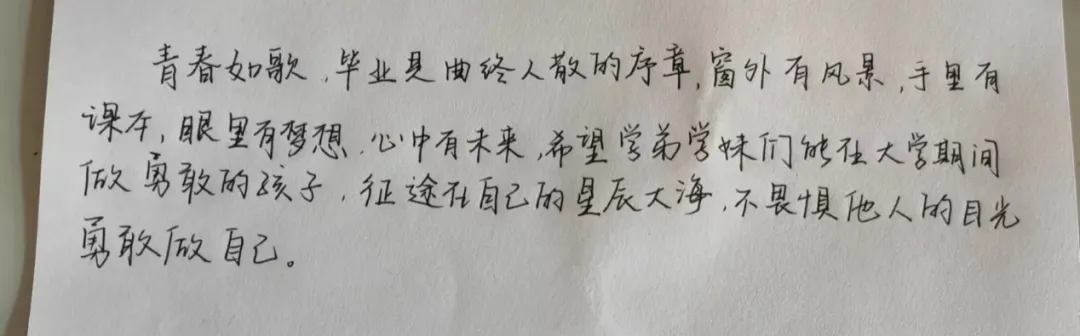 青春如歌,毕业是曲终人散的序章,窗外有风景,手里有
课本,眼里有梦想,心中有未来,希望学弟学妹们能在大学期间
做勇敢的孩子,征途在自己的星辰大海,不畏惧他人的目光
勇敢做自己。